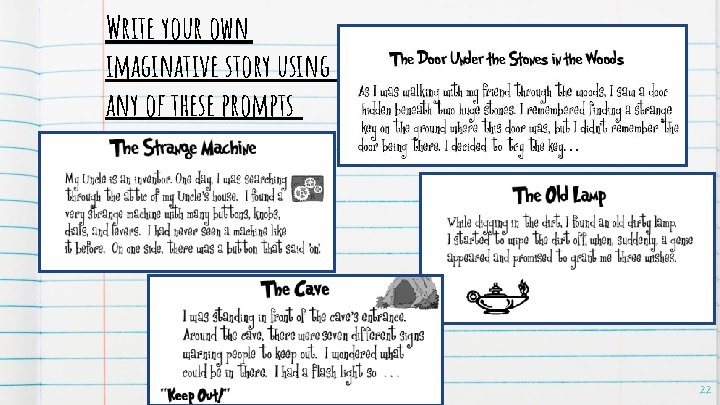 Write your own
imaginative story using
any of these prompts
The Door Under the Stones in the Woods
As I was walking with my friend through the woods, I saw a door
hidden beneath two huge stones. I remembered finding a strange
key on the ground where this door was, but I didn't remember the
door being there. I decided to try the key...
The Strange Machine
My Uncle is an inventor. One day, I was searching
through the attic of my Uncle's house. I found a
very strange machine with many buttons, knobs,
dials, and levers. I had never seen a machine like
it before. On one side, there was a button that said 'on'.
The Old Lamp
While digging in the dirt, I found an old dirty lamp.
I started to wipe the dirt off, when, suddenly, a genie
appeared and promised to grant me three wishes.
The Cave
I was standing in front of the cave's entrance.
Around the cave, there were seven different signs
warning people to keep out. I wondered what
could be in there. I had a flash light so ...
"Keep Out!"
22